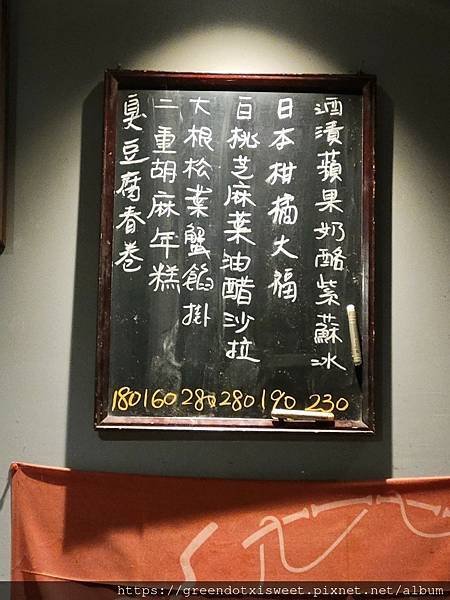 酒漬蘋果奶酪紫蘇冰
日本柑橘大福
白桃芝麻葉油醋沙拉
大根松葉蟹餡掛
二重胡麻年糕
臭豆腐春卷
180 160 280 280 190 230
https://greendotxisweet.pixnet.net/album